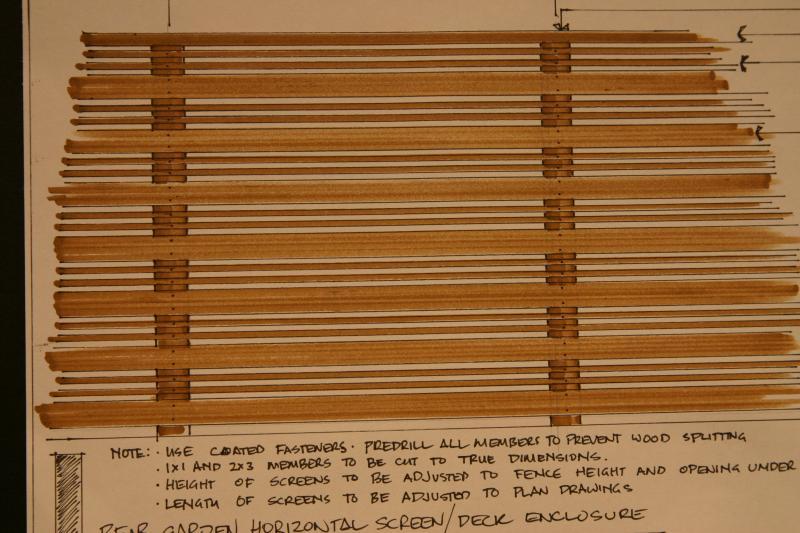 NOTE: · USE COATED FASTENERS · PREDRILL ALL MEMBERS TO PREVENT WOOD SPLITTING
· 1X1 AND 2X3 MEMBERS TO BE CUT TO TRUE DIMENSIONS.
· HEIGHT OF SCREENS TO BE ADJUSTED TO FENCE HEIGHT AND OPENING UNDER
· LENGTH OF SCREENS TO BE ADJUSTED TO PLAN DRAWINGS
REAR GARDEN HORIZONTAL SCREEN/DECK ENCLOSURE